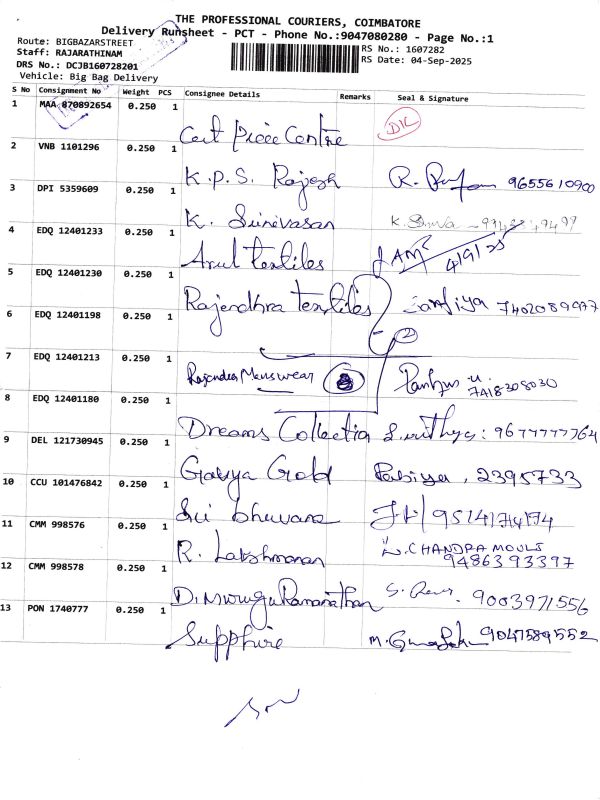 THE PROFESSIONAL COURIERS, COIMBATORE
Delivery Runsheet - PCT - Phone No.:9047080280 - Page No.:1
Route: BIGBAZARSTREET
Staff: RAJARATHINAM
DRS No.: DCJB160728201
Vehicle: Big Bag Delivery
RS No.: 1607282
RS Date: 04-Sep-2025
S No Consignment No Weight PCS Consignee Details Remarks Seal & Signature
1 MAA 870892654 0.250 1 Cut Piece Centre D/L
2 VNB 1101296 0.250 1 K.P.S. Rajesh R. 9655610900
3 DPI 5359609 0.250 1 K. Srinivasan K. Siva
4 EDQ 12401233 0.250 1 Arul textiles 4/9/25
5 EDQ 12401230 0.250 1 Rajendhra textiles 7402089977
6 EDQ 12401198 0.250 1 2
7 EDQ 12401213 0.250 1 Rajendra Menswear 7418308030
8 EDQ 12401180 0.250 1 Dreams Collection
9 DEL 121730945 0.250 1 Gavya Gold Rabiya, 2395733
10 CCU 101476842 0.250 1 Sri bhuvana 9514174174
11 CMM 998576 0.250 1 R. Lakshmanan CHANDRA MOULI 9486393397
12 CMM 998578 0.250 1 D. Murugu Ramanathan S. 9003971556
13 PON 1740777 0.250 1 Sapphire M. 9047589552